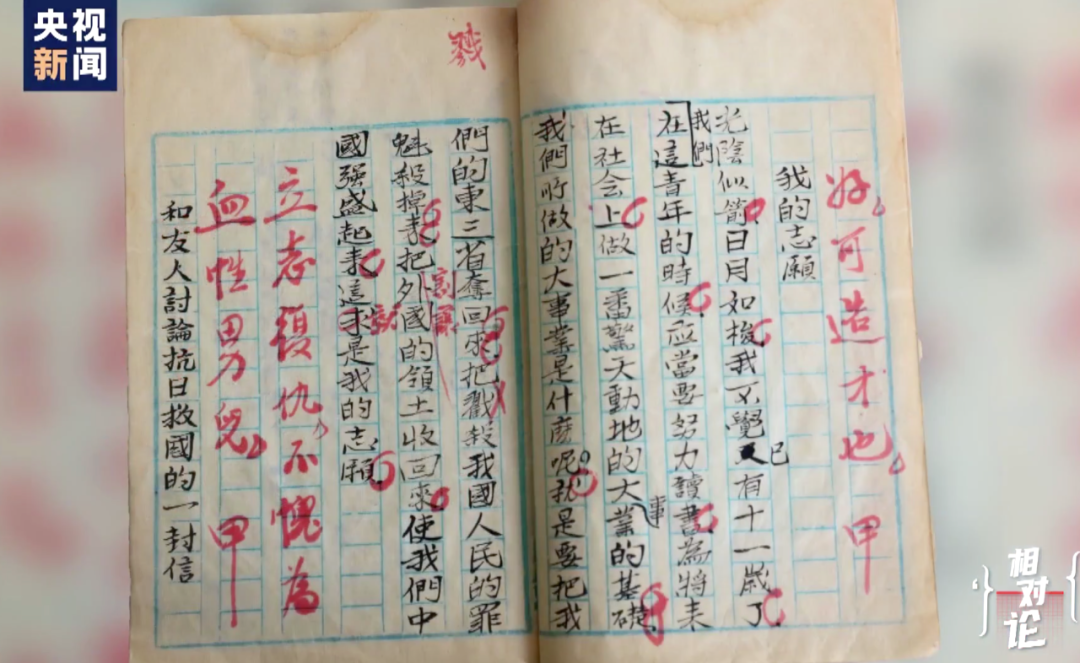 央视
新闻
好可造才也 甲
我的志願
光陰似箭日月如梭我不覺已有十一歲了
我們在這青年的時候应當要努力讀書為將来
在社会上做一番驚天動地的大事業的基礎
我們所做的大事業是什麽呢。我是要把我
戮
們的東三省奪回來把戳殺我國人民的罪
魁殺掉再把外國的領土收回來使我們中
割讓
國強盛起来這才是我的志願
立志複仇不愧為
血性男兒 甲
和友人討論抗日救國的一封信
相对论